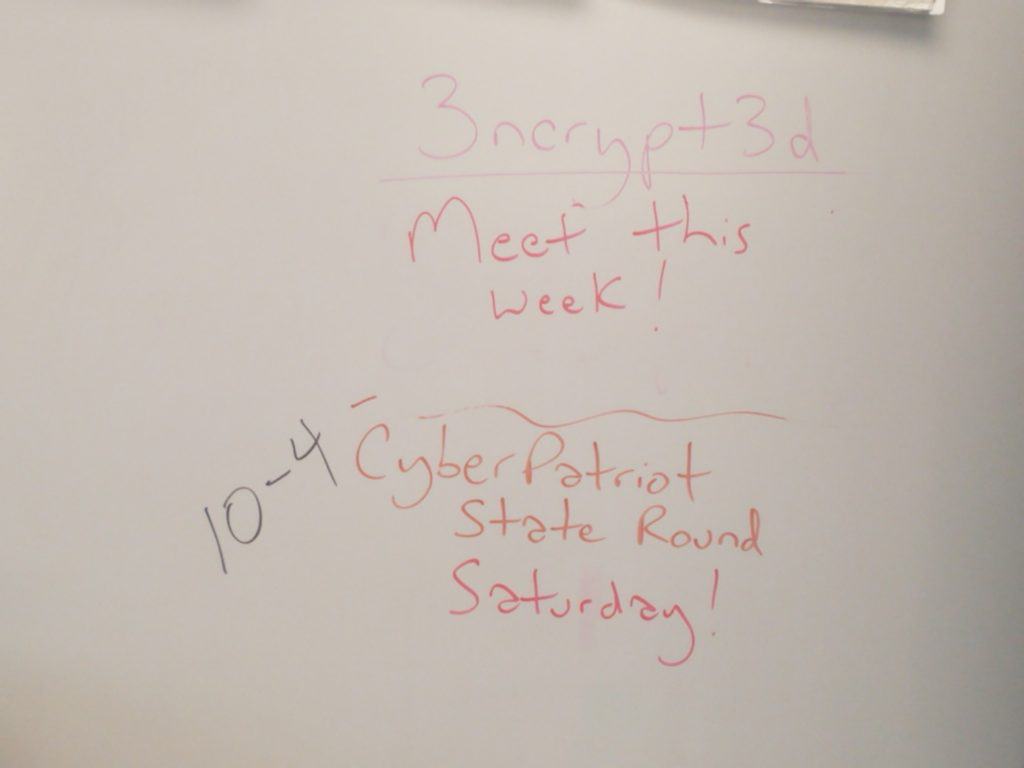 3ncrypt3d
Meet this
week!
10-4
CyberPatriot
State Round
Saturday!